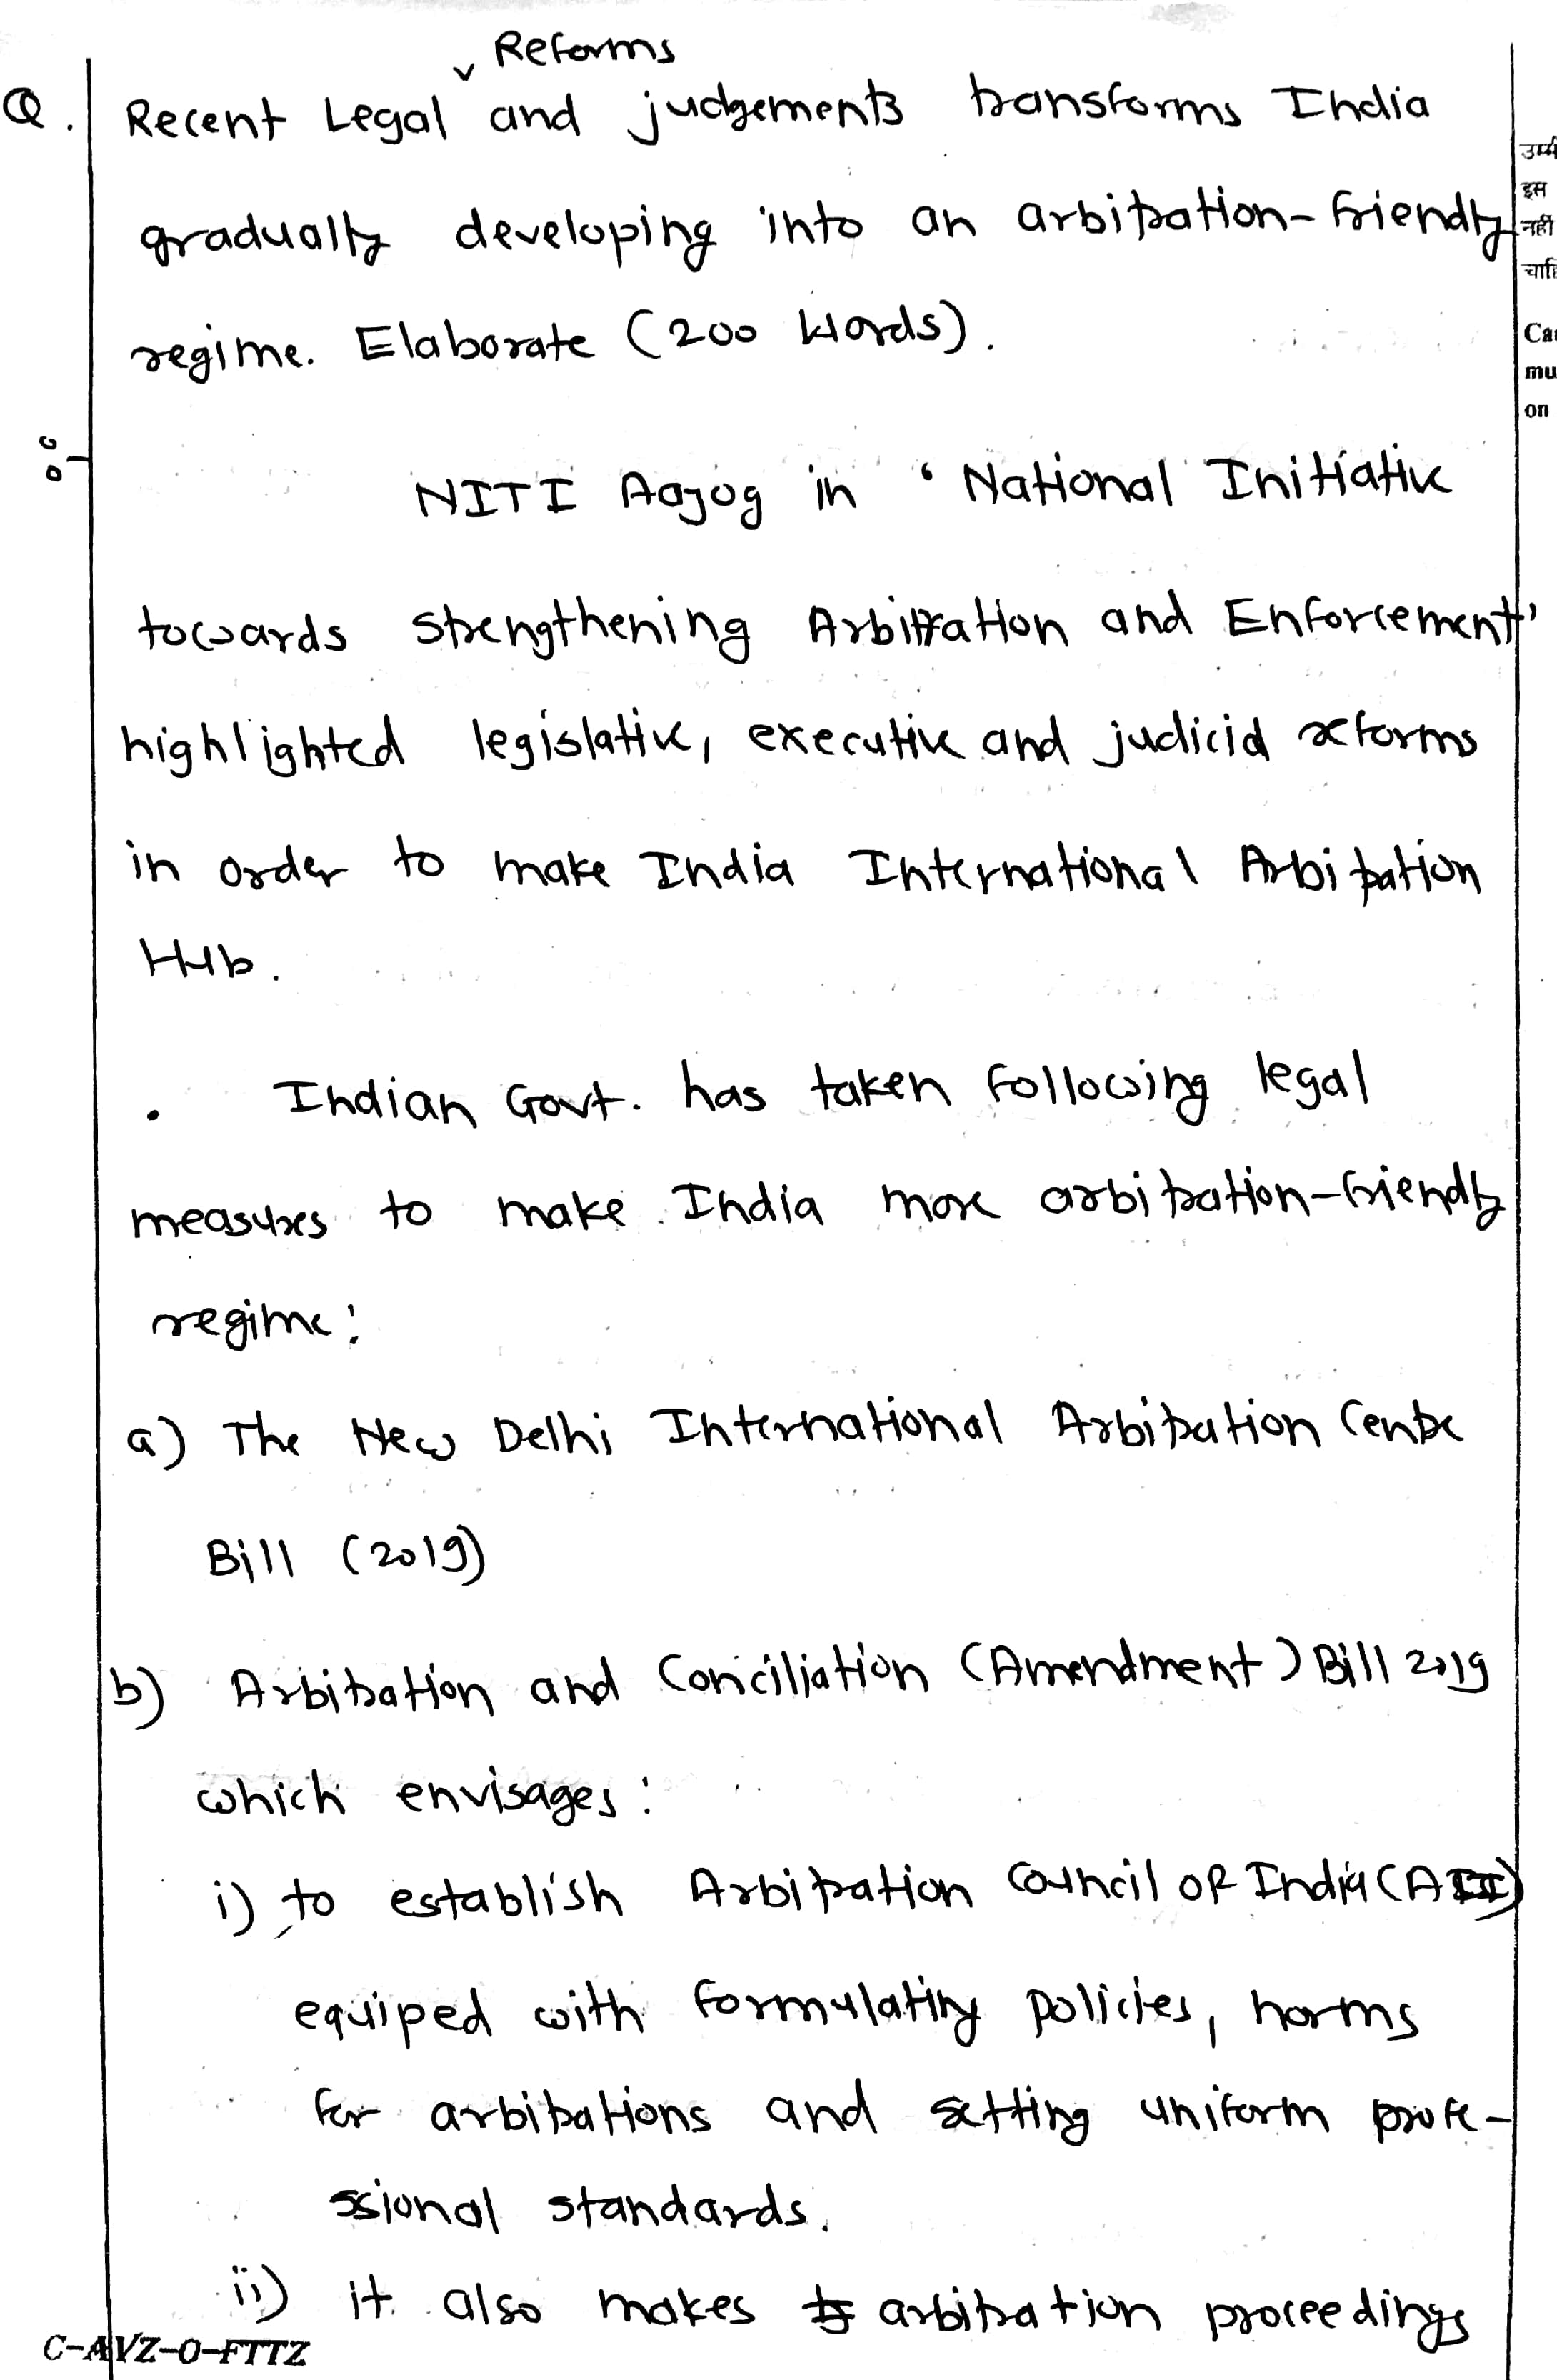 Reforms
Q. Recent Legal ˅ and judgements transforms India
gradually developing into an arbitration-friendly
regime. Elaborate (200 Words).
NITI Aayog in 'National Initiative
towards strengthening Arbitration and Enforcement'
highlighted legislative, executive and judicial reforms
in order to make India International Arbitration
Hub.
• Indian Govt. has taken following legal
measures to make India more arbitration-friendly
regime:
a) The New Delhi International Arbitration Centre
Bill (2019)
b) Arbitration and Conciliation (Amendment) Bill 2019
which envisages:
i) to establish Arbitration Council of India
equiped with formulating policies, norms
for arbitrations and setting uniform profe-
ssional standards.
ii) it also makes arbitration proceedings
C-AVZ-O-FTTZ
इस
नहीं
on